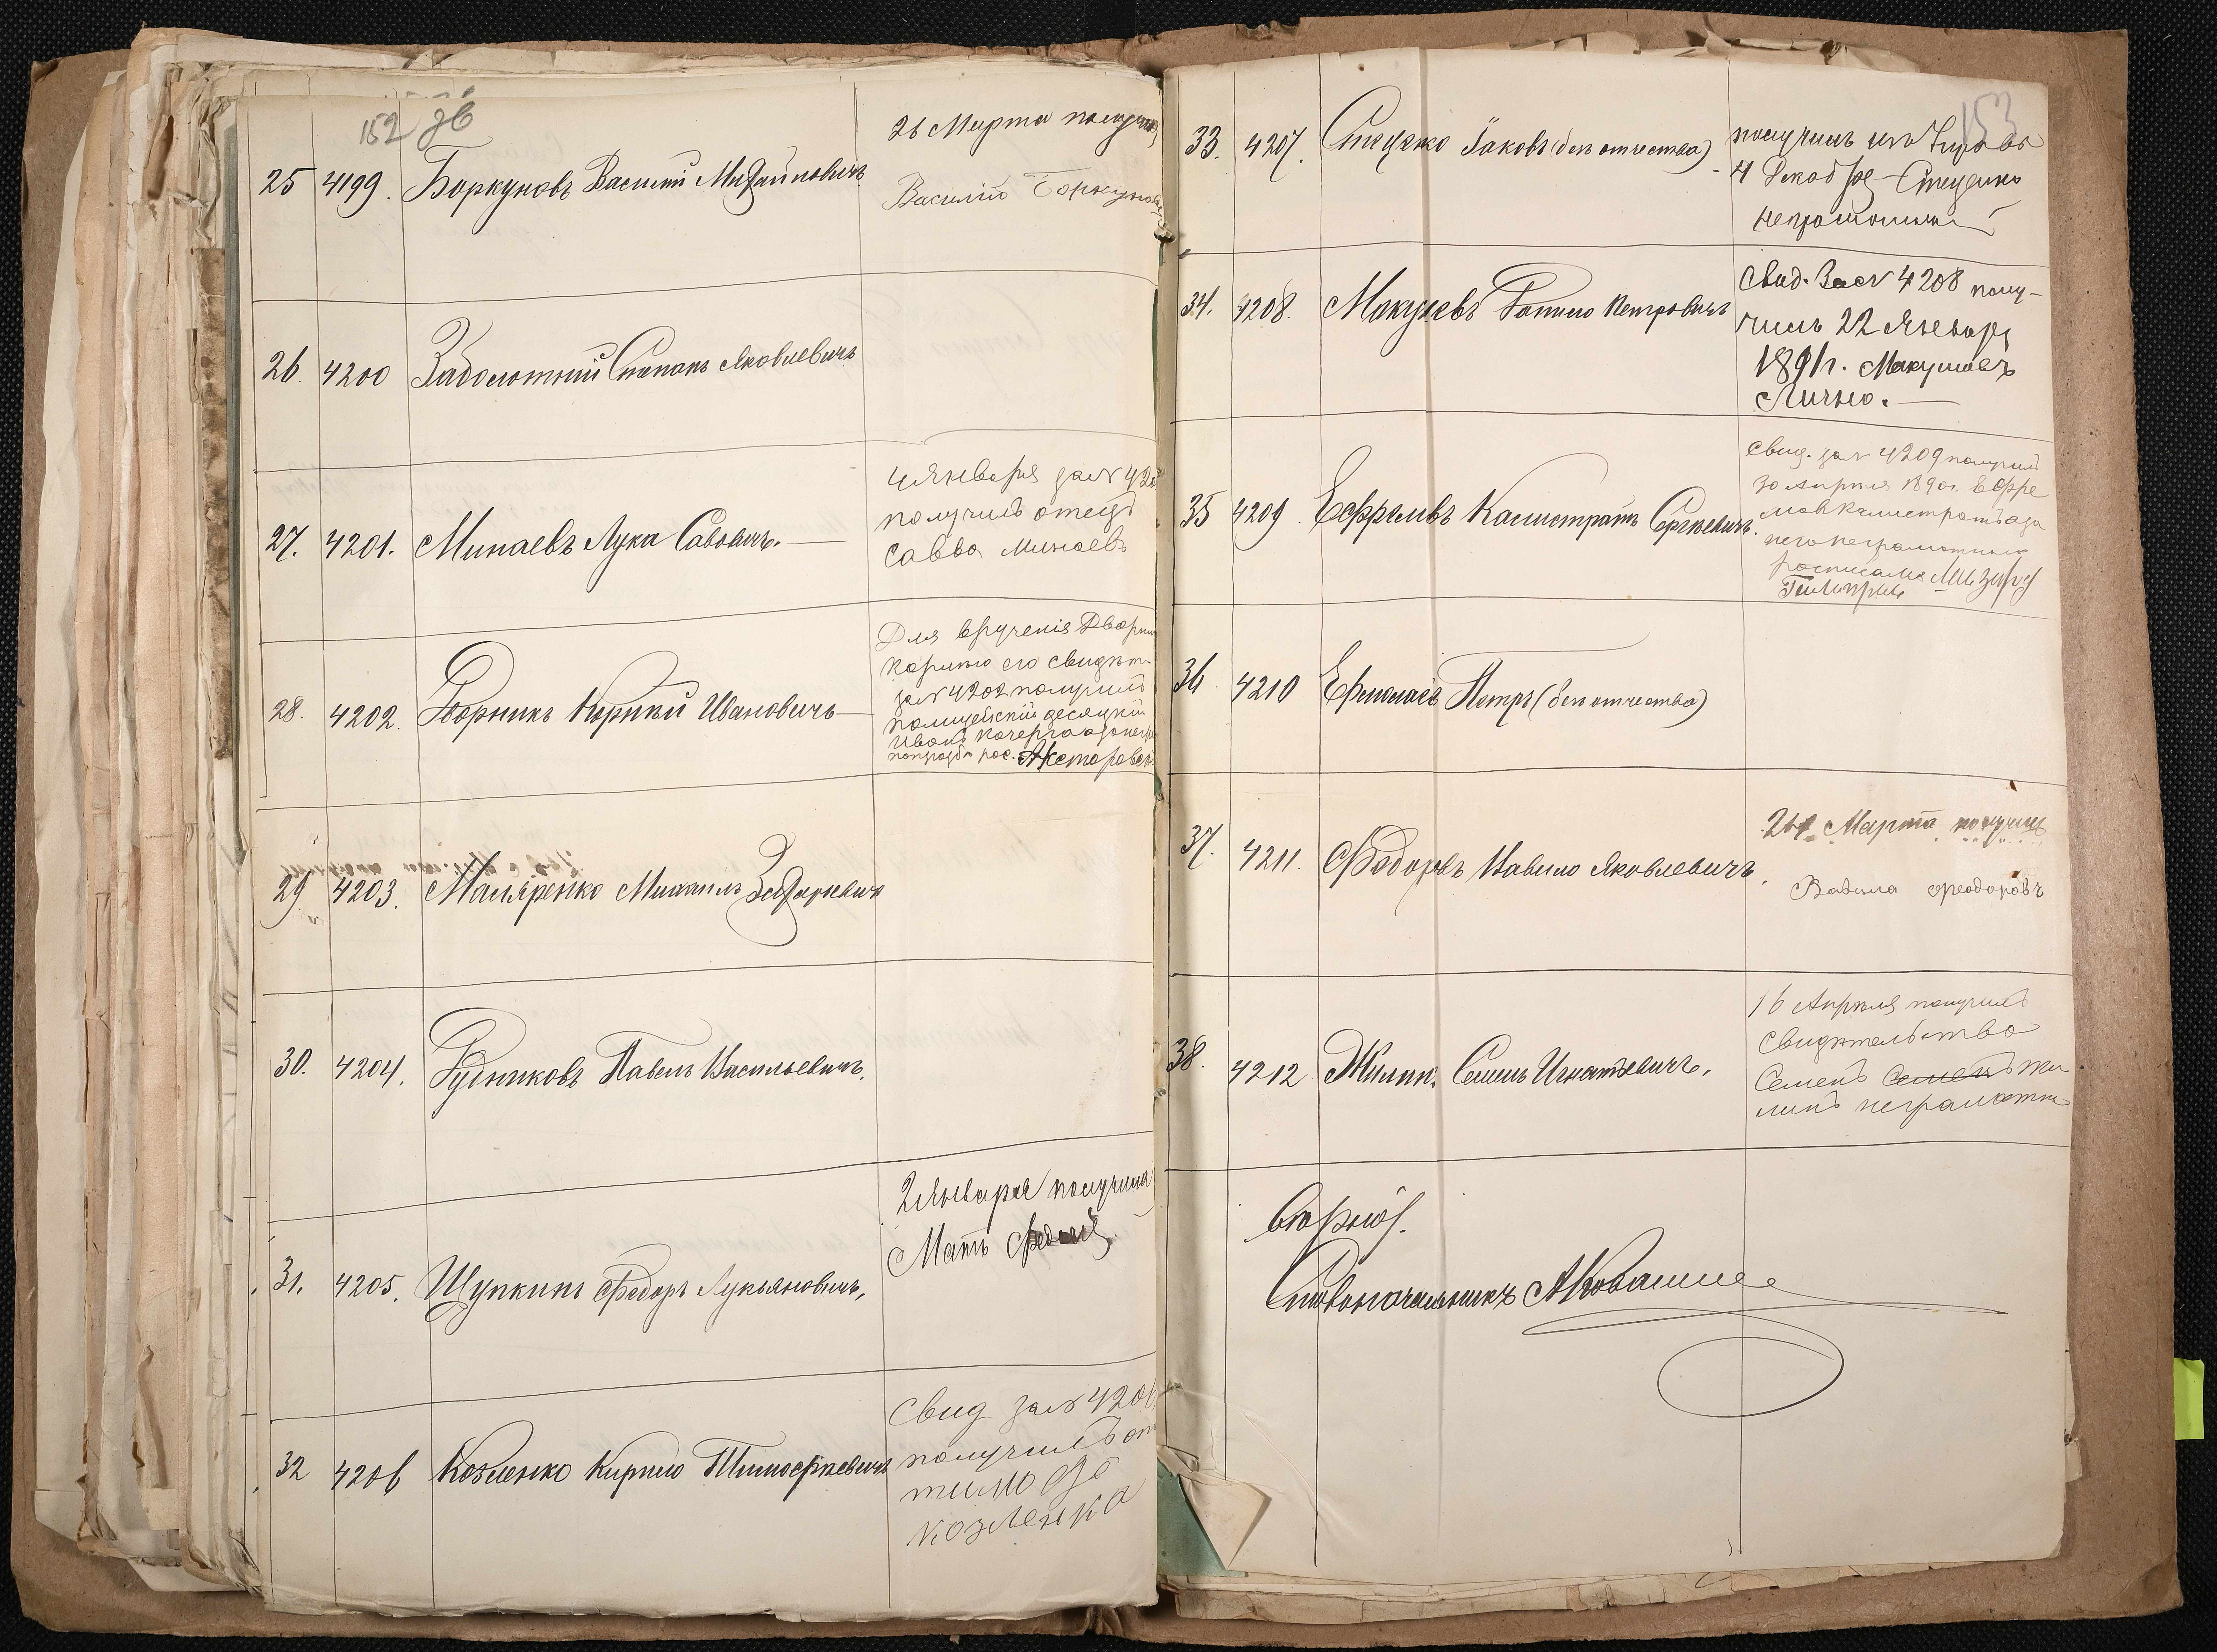 152 об
25 4199. Боркуновъ Василій Михайловичъ
26 Марта получилъ
Василій Боркуновъ
26. 4200 Заболотній Степанъ Яковлевичъ
27. 4201. Минаевъ Лука Сововичъ. —
4 Января за № 420
получилъ отецъ
Савва Минаевъ
28. 4202. Дворникъ Корнѣй Ивановичъ —
Для врученія Дворни
Корнѣю его свидѣт.
за № 4202 получилъ
полицейскій десяцкій
Иванъ Кочерга а за него
рос.
29 4203. Маляренко Михаилъ Захарьевичъ
30. 4204. Рудниковъ Павелъ Васильевичъ.
31. 4205. Щупкинъ Ѳедоръ Лукьяновичъ.
2 Января получила
Мать
32 4206 Козленко Кирило Тимоѳѣевичъ
Свид за № 4206
получилъ от
тимоѳѣ
козленка
153
33. 4207. Стеценко Яковъ (безъ отчества)
получилъ изъ
4 Декабре Стеценко
неграмотный
34. 4208. Макушевъ Гаврило Петровичъ
Свид. За № 4208 полу-
чилъ 22 Январ
1891 г. Макушовъ
Лично. —
35 4209. Ефремовъ Калистратъ Сергѣевичъ.
Свид. за № 4209 получилъ
30 Апрѣля 1890 г. Ефре
мовъ Калистратъ а за
него неграмотнаго
росписался
36 4210 Ермолаевъ Петръ (безъ отчества)
37. 4211. Ѳедоровъ Вавило Яковлевичъ.
Марта получилъ
Вавила Ѳеодоровъ
38. 4212 Жилин. Семенъ Игнатьевичъ.
16 Апрѣля получилъ
свидѣтельство
Семенъ Семенъ Жи
линъ неграмотны
Вѣрно:
Столоначальникъ